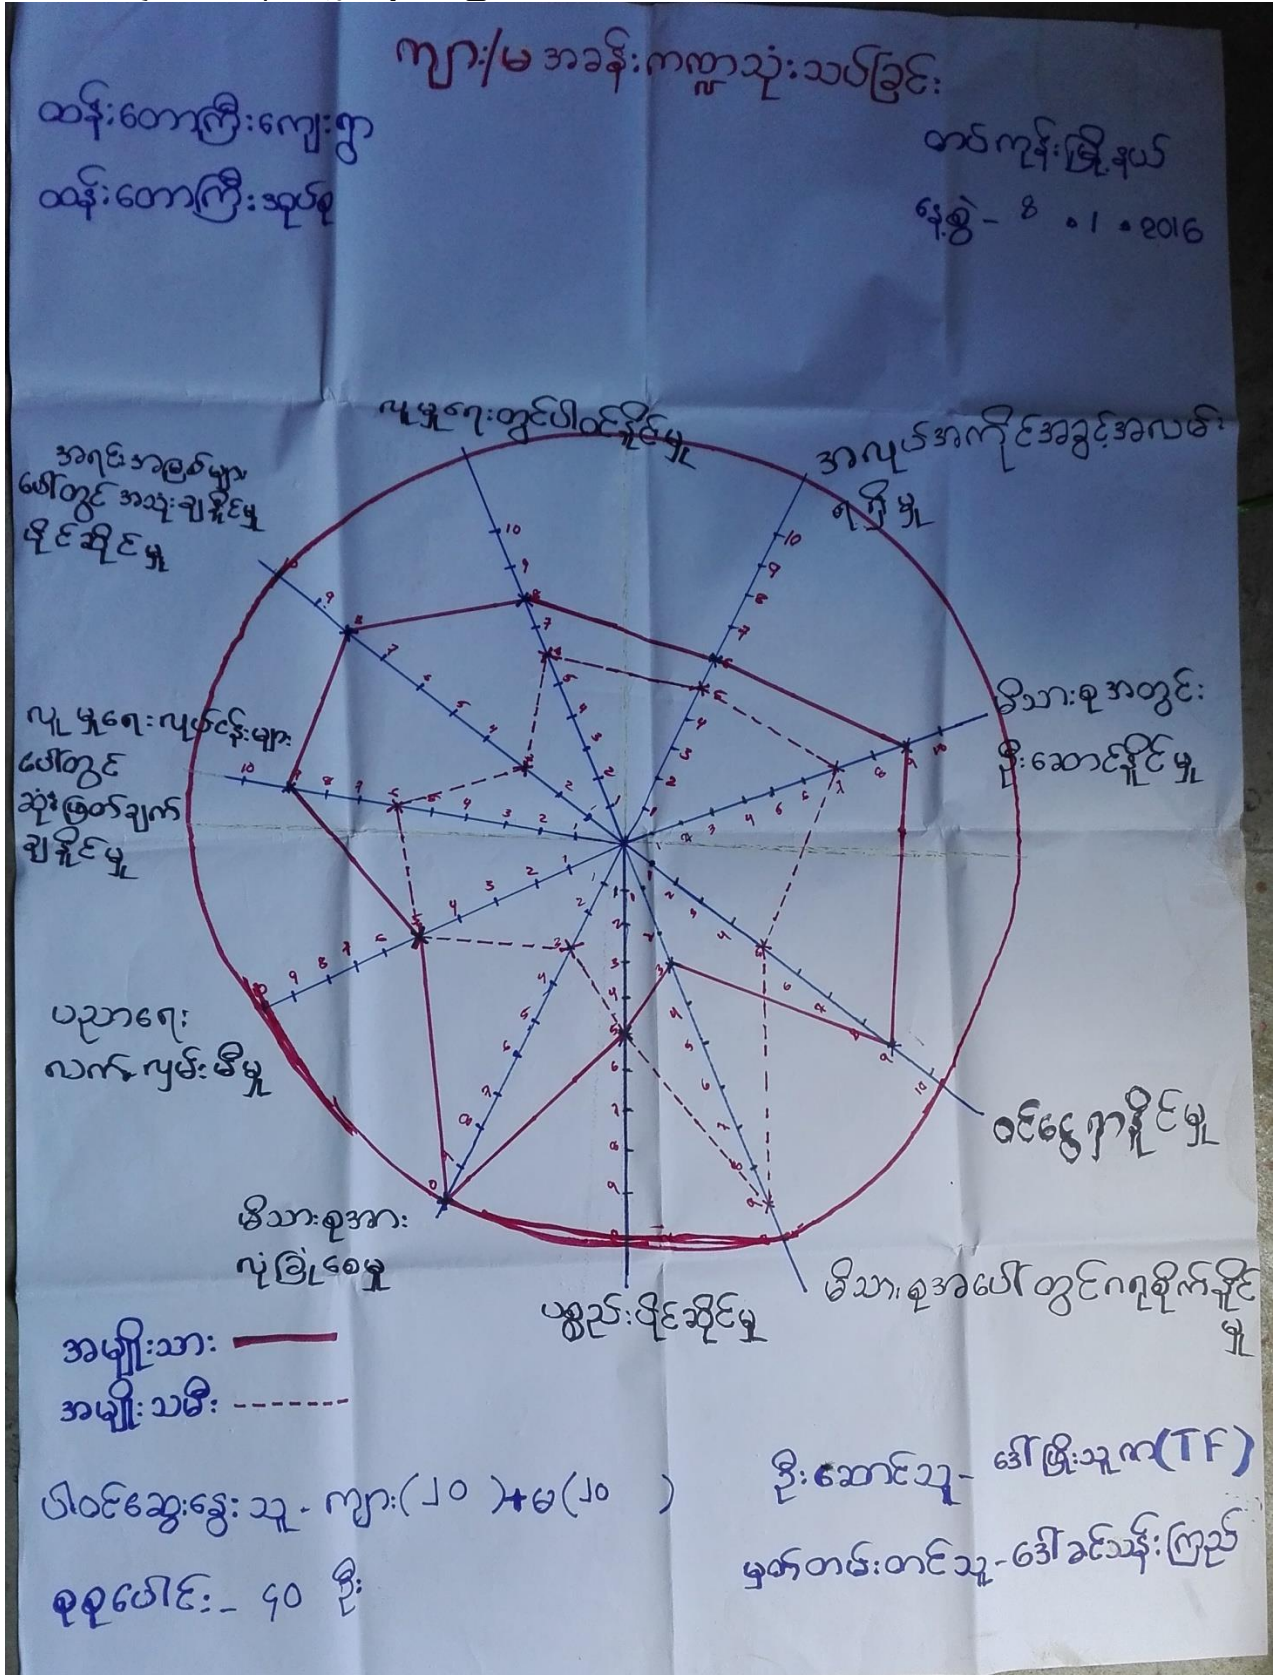 ကျား/မ အခန်းကဏ္ဍသုံးသပ်ခြင်း
ထန်းတောကြီးကျေးရွာ
ထန်းတောကြီးအုပ်စု
တပ်ကုန်းမြို့နယ်
နေ့စွဲ - 8 . 1 . 2016
လူမှုရေးတွင်ပါဝင်နိုင်မှု
အလုပ်အကိုင်အခွင့်အလမ်း
ရရှိမှု
အရင်းအမြစ်များ
ပေါ်တွင် အသုံးချနိုင်မှု
ပိုင်ဆိုင်မှု
မိသားစုအတွင်း
ဦးဆောင်နိုင်မှု
လူမှုရေးလုပ်ငန်းများ
ပေါ်တွင်
ဆုံးဖြတ်ချက်
ချနိုင်မှု
ပညာရေး
လက်လှမ်းမီမှု
ဝင်ငွေရှာနိုင်မှု
မိသားစုအား
လုံခြုံစေမှု
ပစ္စည်းပိုင်ဆိုင်မှု
မိသားစုအပေါ်တွင်ဂရုစိုက်နိုင်
မှု
အမျိုးသား
အမျိုးသမီး
ပါဝင်ဆွေးနွေးသူ - ကျား(၂၀ )+မ(၂၀ )
စုစုပေါင်း - ၄၀ ဦး
ဦးဆောင်သူ - ဒေါ်ဖြိုးသူဇာ(TF)
မှတ်တမ်းတင်သူ - ဒေါ်ခင်သန်းကြည်